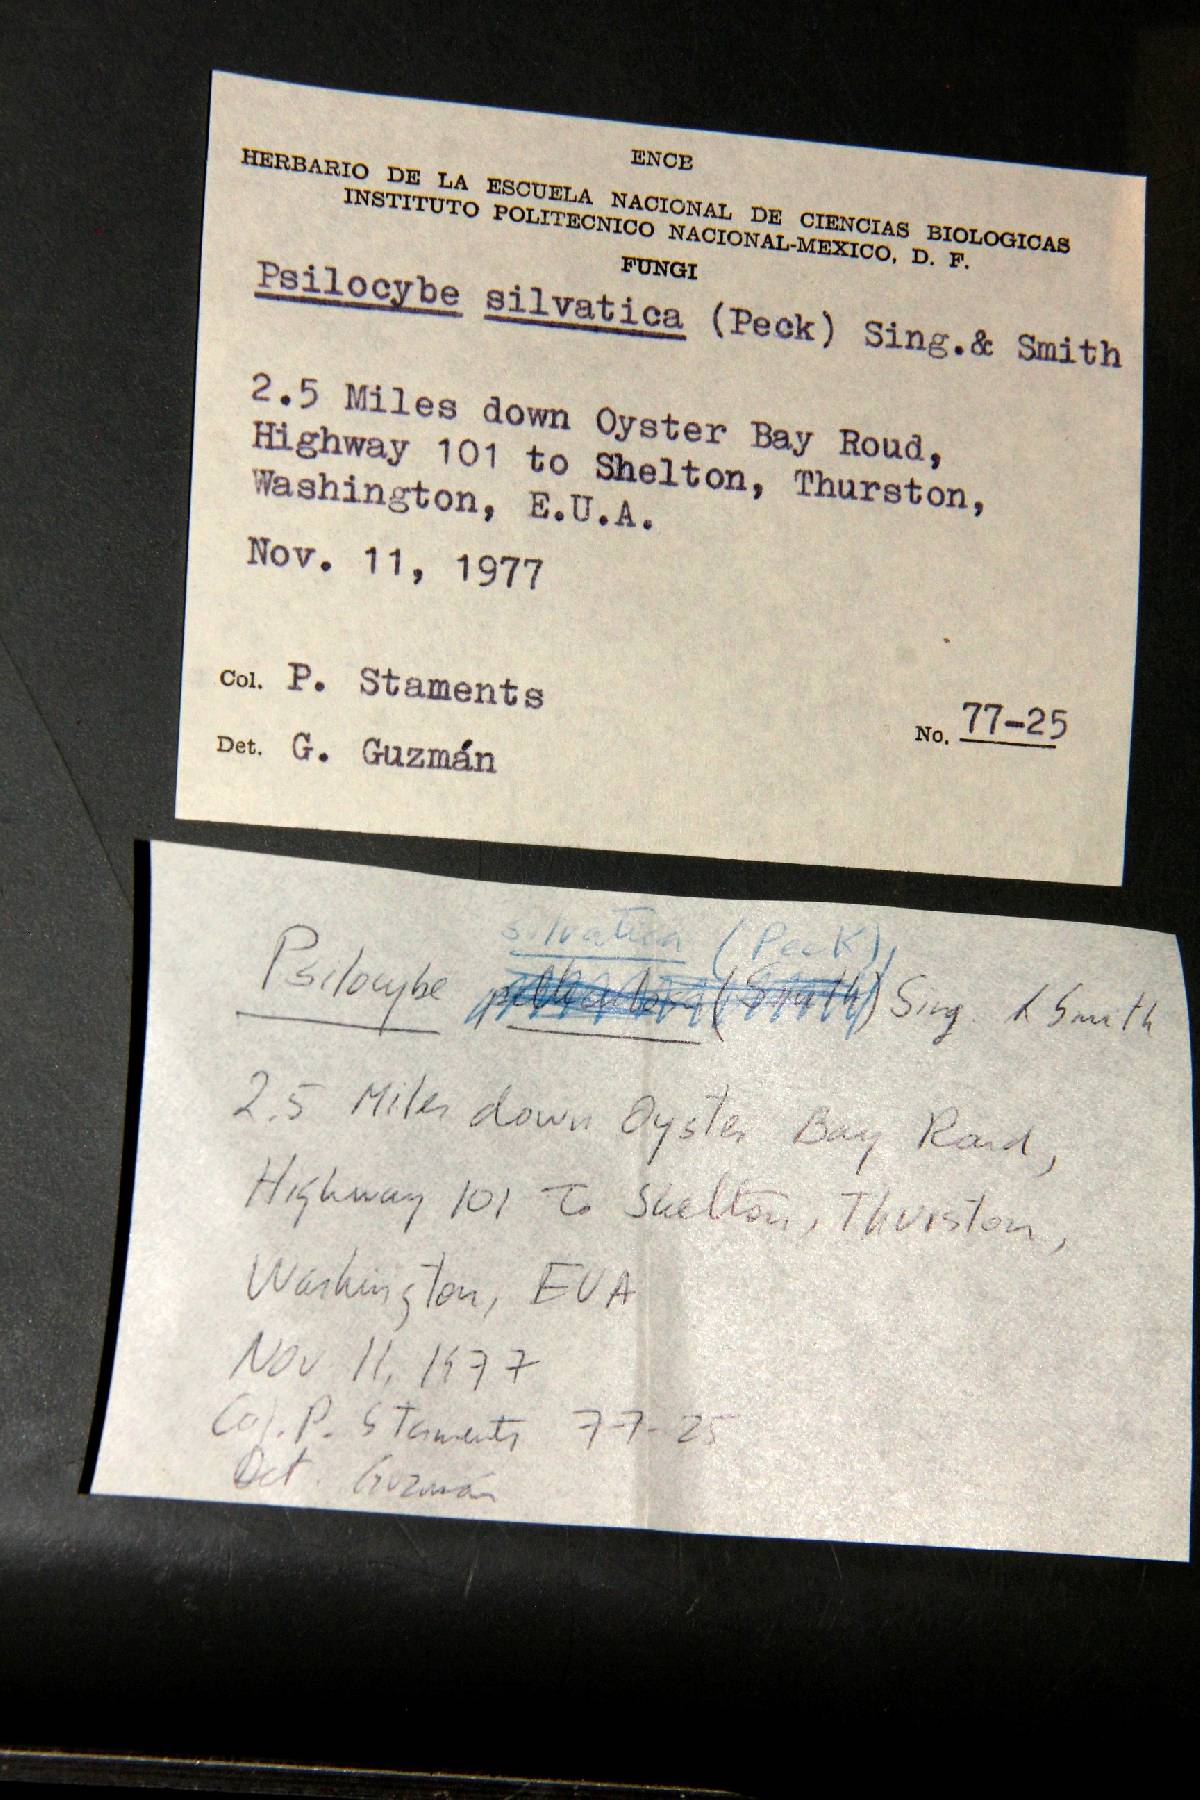 ENCB
HERBARIO DE LA ESCUELA NACIONAL DE CIENCIAS BIOLOGICAS
INSTITUTO POLITECNICO NACIONAL-MEXICO, D. F.
FUNGI
Psilocybe silvatica (Peck) Sing.& Smith
2.5 Miles down Oyster Bay Roud,
Highway 101 to Shelton, Thurston,
Washington, E.U.A.
Nov. 11, 1977
Col. P. Staments
No. 77-25
Det. G. Guzmán
silvatica (Peck)
Psilocybe (Smith) Sing. & Smith
2.5 Miles down Oyster Bay Road,
Highway 101 to Shelton, Thurston,
Washington, EUA
Nov 11, 1977
Col. P. Staments 77-25
Det. Guzmán